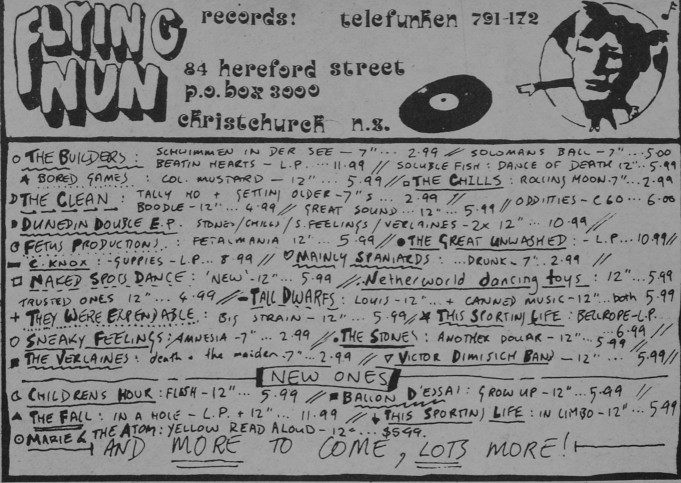 FLYING NUN
records! telefunken 791-172
84 hereford street
p.o. box 3000
christchurch n.z.
THE BUILDERS: SCHWIMMEN IN DER SEE - 7"... 2.99 // SOLOMANS BALL - 7"... 5.00
BEATIN HEARTS - L.P. ... 11.99 // SOLUBLE FISH: DANCE OF DEATH 12"... 5.99
BORED GAMES: COL. MUSTARD - 12" ... 5.99 // THE CHILLS: ROLLING MOON-7"...2.99
THE CLEAN: TALLY HO + GETTING OLDER-7"S ... 2.99 // ODDITIES - C60 ... 6.00
BOODLE - 12" ... 4.99 // GREAT SOUND ... 12" ... 5.99
DUNEDIN DOUBLE E.P. STONES/CHILLS/S.FEELINGS/VERLAINES - 2x 12" ... 10.99 //
FETUS PRODUCTIONS: FETALMANIA 12" ... 5.99 // THE GREAT UNWASHED: - L.P... 10.99//
C. KNOX: - GUPPIES - L.P... 8.99 // MAINLY SPANIARDS: ...DRUNK-7".. 2.99 //
NAKED SPOTS DANCE: 'NEW'-12" ... 5.99 // Netherworld dancing toys: 12"...5.99
TRUSTED ONES 12" ... 4.99 // TALL DWARFS: LOUIS - 12" ... + CANNED MUSIC-12"...both 5.99
THEY WERE EXPENDABLE: BIG STRAIN - 12" ... 5.99 // THIS SPORTING LIFE: BELLROPE-L.P.
6.99 //
SNEAKY FEELINGS: AMNESIA -7" ... 2.99 // THE STONES: ANOTHER DOLLAR - 12" ... 5.99 //
THE VERLAINES: death & the maiden -7"... 2.99 // VICTOR DIMISICH BAND - 12" ... 5.99//
NEW ONES
CHILDRENS HOUR: FLESH - 12" ... 5.99 // BALLON D'ESSAI: GROW UP - 12" ... 5.99 //
THE FALL: IN A HOLE - L.P. + 12" ... 11.99 // THIS SPORTING LIFE: IN LIMBO - 12" ... 5.99
MARIE & THE ATOM: YELLOW READ ALOUD - 12" ... $5.99.
AND MORE TO COME, LOTS MORE!